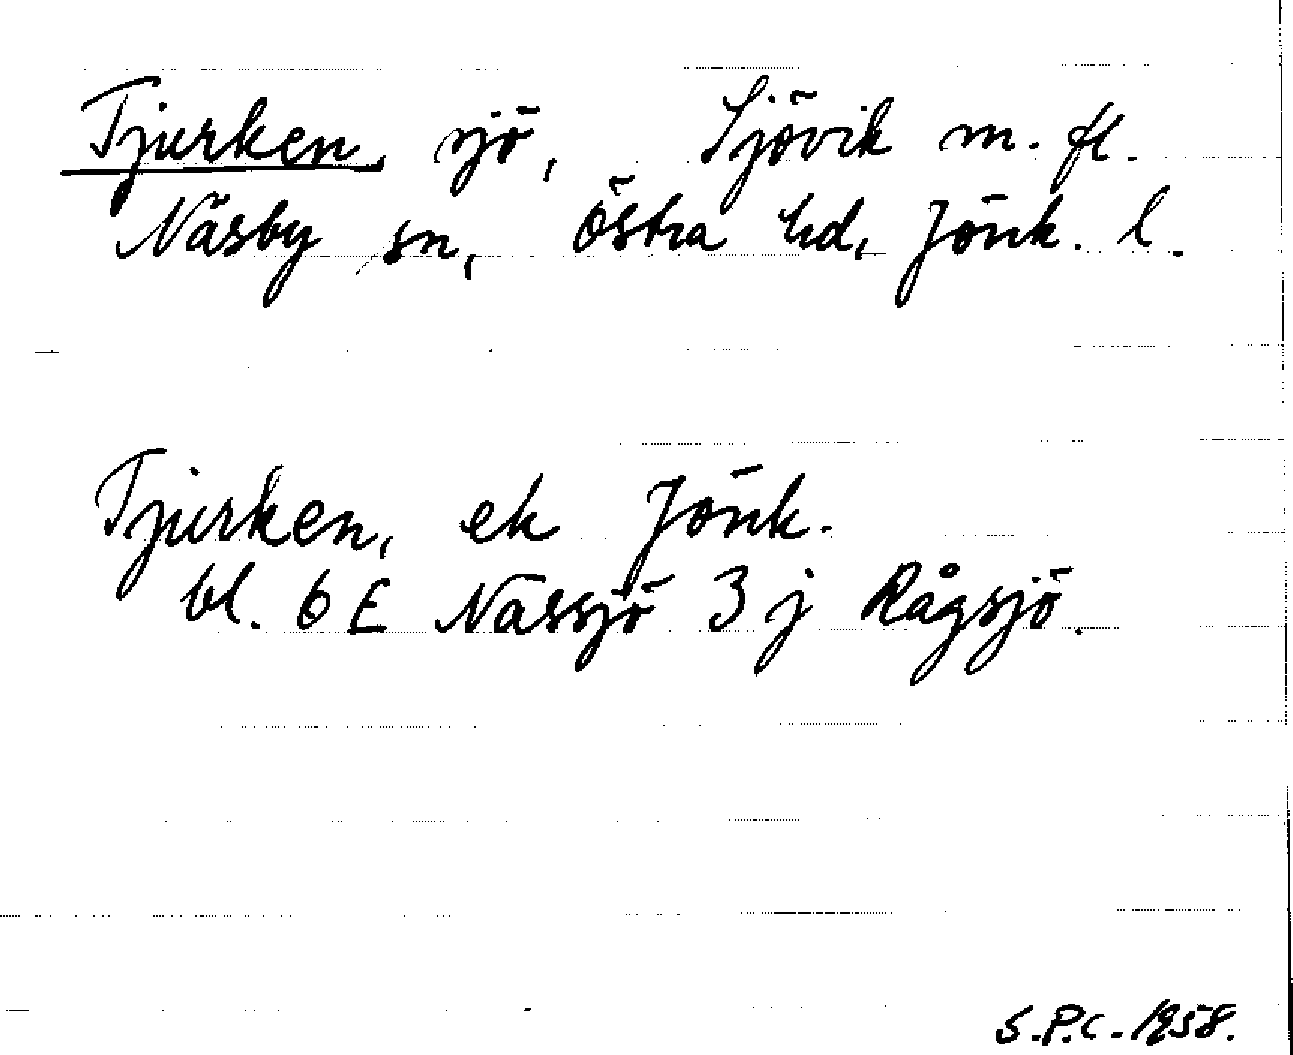 Tjurken, sjö, Sjövik m. fl.
Näsby sn, Östra hd, Jönk. l.
Tjurken, ek Jönk.
bl. 6 E Nässjö 3 j Rågsjö.
S.P.C. 1958.